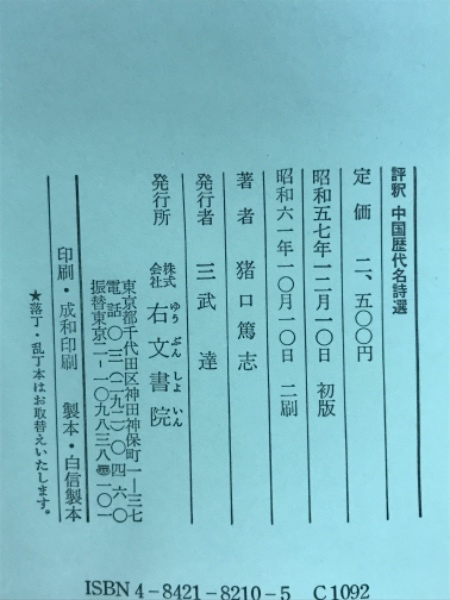 評釈 中国歴代名詩選
定価 二、五〇〇円
昭和五七年一二月一〇日 初版
昭和六一年一〇月一〇日 二刷
著者 猪口篤志
発行者 三武達
発行所 株式会社 右文書院
ゆうぶんしょいん
東京都千代田区神田神保町一―三七
電話〇三(二九二)〇四六〇
振替東京二―一〇九八三八 一〇一
印刷・成和印刷 製本・白信製本
★落丁・乱丁本はお取替えいたします。
ISBN4-8421-8210-5 C1092